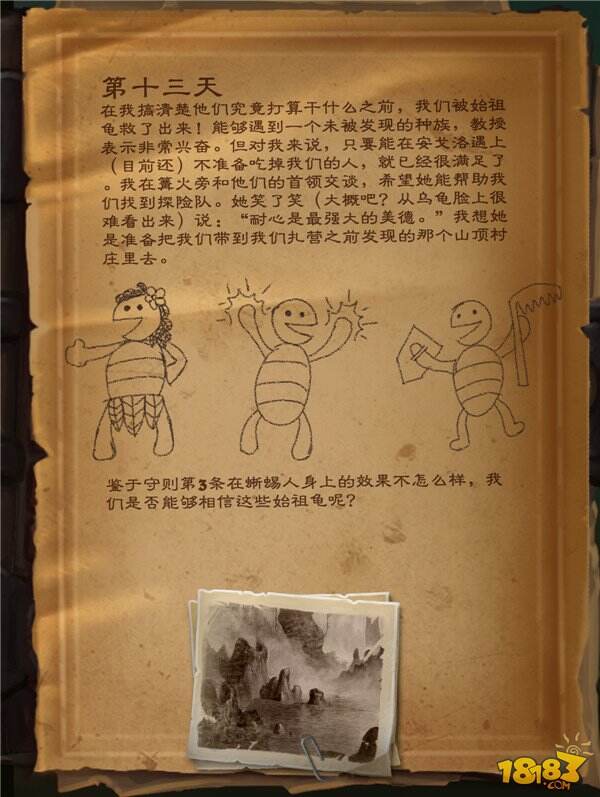 第十三天
在我搞清楚他们究竟打算干什么之前，我们被始祖
龟救了出来！能够遇到一个未被发现的种族，教授
表示非常兴奋。但对我来说，只要能在安戈洛遇上
（目前还）不准备吃掉我们的人，就已经很满足了
。我在篝火旁和他们的首领交谈，希望她能帮助我
们找到探险队。她笑了笑（大概吧？从乌龟脸上很
难看出来）说：“耐心是最强大的美德。”我想她
是准备把我们带到我们扎营之前发现的那个山顶村
庄里去。
鉴于守则第3条在蜥蜴人身上的效果不怎么样，我
们是否能够相信这些始祖龟呢？
18183
.COM